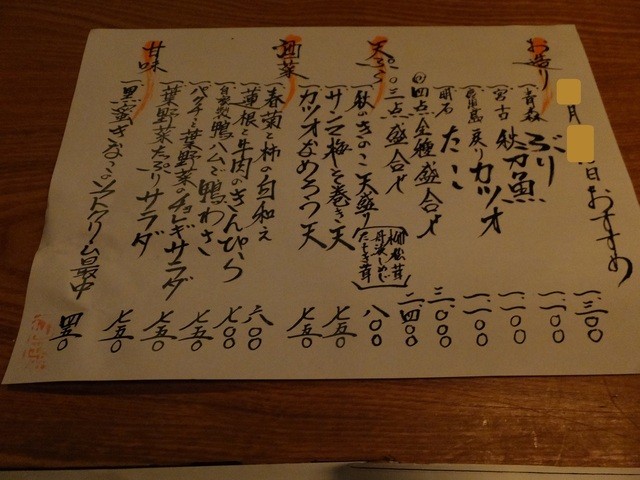 月 日 おすすめ
お造り
一、青森 ぶり 一、三〇〇
一、宮古 秋刀魚 一、一〇〇
一、戻りカツオ 一、一〇〇
一、明石 たこ 一、一〇〇
◎四点全種盛合せ 三、〇〇〇
◎三点盛合せ 二、四〇〇
天ぷら
一、秋のきのこ天盛り 八〇〇
一、サンマ梅しそ巻き天 七五〇
一、カツオなめろう天 七五〇
皿菜
一、春菊と柿の白和え 六〇〇
一、蓮根と牛肉のきんぴら 七〇〇
一、自家製鴨ハムで鴨わさ 七五〇
一、パクチーと葉野菜のチョレギサラダ 七五〇
一、葉野菜たっぷりサラダ 七五〇
甘味
一、黒蜜きなこのソフトクリーム最中 四五〇